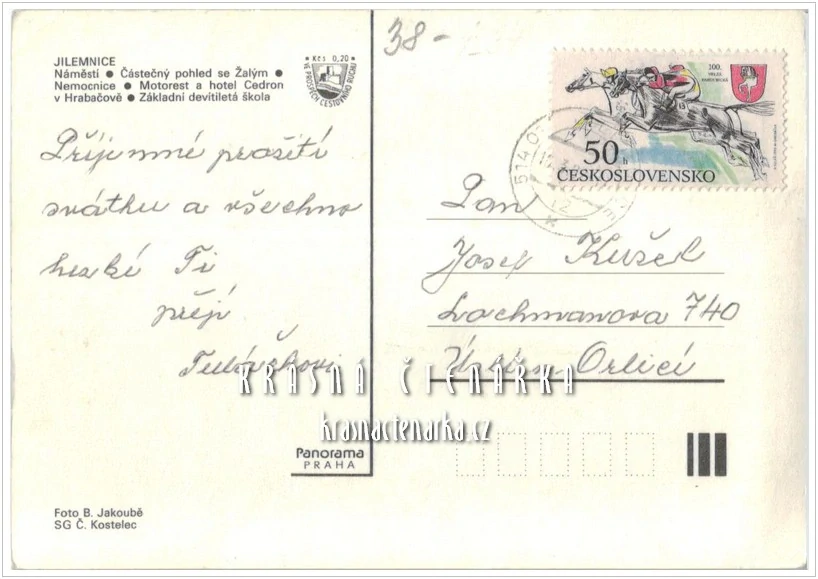 38-
JILEMNICE
Náměstí ● Částečný pohled se Žalým ●
Nemocnice ● Motorest a hotel Cedron
v Hrabačově ● Základní devítiletá škola
Kčs 0,20
VE PROSPĚCH CESTOVNÍHO RUCHU
100.
VELKÁ
PARDUBICKÁ
50 h
ČESKOSLOVENSKO
514 0
12
Příjemné prožití
svátku a všechno
hezké Ti
přejí
Pan
Josef Kušek
Lochmanova 740
Orlicí
KRÁSNÁ ČTENÁŘKA
krasnactenarka.cz
Panorama
PRAHA
Foto B. Jakoubě
SG Č. Kostelec